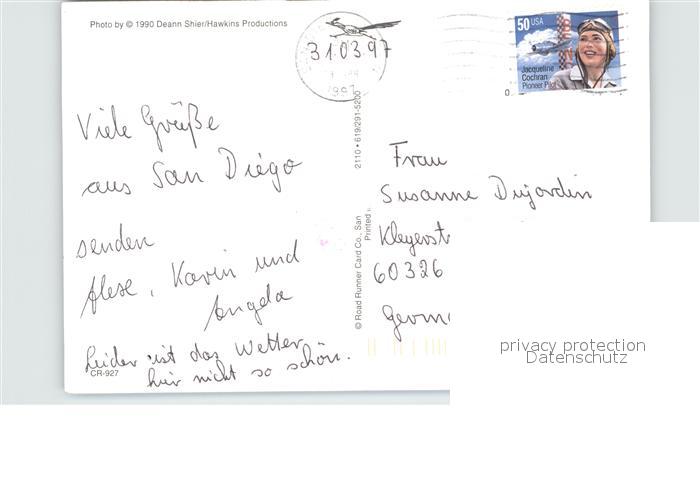 Photo by © 1990 Deann Shier/Hawkins Productions
31.03.97
1997
50 USA
Jacqueline
Cochran
Pioneer Pilot
Viele Grüße
aus San Diego
senden
Karin und
Angela
Leider ist das Wetter
hier nicht so schön.
CR-927
© Road Runner Card Co., San
Printed
2110 • 619/291-5200
Frau
Susanne Dujardin
60326
privacy protection
Datenschutz